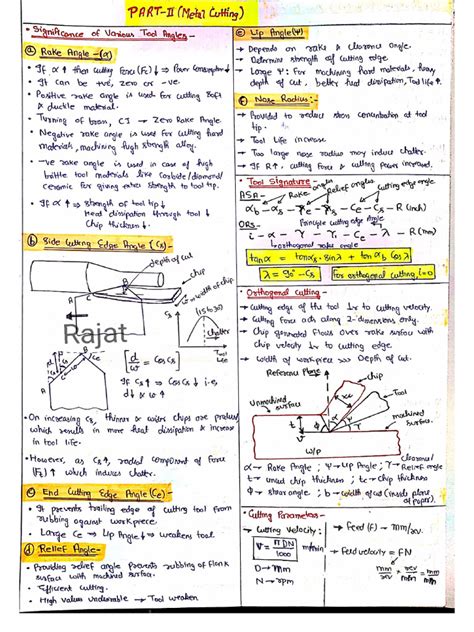 PART-II (Metal Cutting)
• Significance of Various Tool Angles -
ⓐ Rake Angle - (α)
• If α↑ then cutting Force (Fc)↓ ⇒ Power Consumption↓
• It can be +ve, zero or -ve.
• Positive rake angle is used for cutting soft
& ductile material.
• Turning of brass, CI → Zero Rake Angle.
• Negative rake angle is used for cutting hard
materials, machining high strength alloy.
• -ve rake angle is used in case of high
brittle tool materials like carbide/diamond/
ceramic for giving extra strength to tool tip.
• If α↑ ⇒ strength of tool tip↓
Heat dissipation through tool↓
Chip thickness↓
ⓑ Side Cutting Edge Angle (Cs)
depth of cut
chip
w = width of chip
Rajat
Cs
(15 to 30)
chatter
Tool
Life
[d/w = Cos Cs]
If Cs↑ ⇒ Cos Cs↓ i.e,
d↓ w↑
• On increasing Cs, thinner & wider chips are produced
which results in more heat dissipation & increase
in tool life.
• However, as Cs↑, radial component of Force
↑ which induces chatter.
ⓒ End Cutting Edge Angle (Ce)
• It prevents trailing edge of cutting tool from
rubbing against workpiece.
• Large Ce ⇒ Lip Angle↓ ⇒ weakens tool.
ⓓ Relief Angle -
• Providing relief angle prevents rubbing of flank
surface with machined surface.
• Efficient cutting.
• High value undesirable → Tool weaken
ⓔ Lip Angle (Ψ)
→ Depends on rake & clearance angle.
→ Determine strength of cutting edge.
→ Large Ψ: For machining hard materials, heavy
depth of cut, better heat dissipation, Tool life↑.
ⓕ Nose Radius:-
→ Provided to reduce stress concentration at tool
tip.
→ Tool Life increase
→ Too large nose radius may induce chatter.
→ If R↑, cutting Force & cutting Power increased.
• Tool Signature
Rake angle
Relief angles
Cutting edge angle
ASA - αb - αs - - Ce - Cs - R (inch)
Principle cutting edge Angle
ORS - i - α - - λ - R (mm)
orthogonal rake angle
tan α = tan αs · sin λ + tan αb cos λ
λ = 90° - Cs
For orthogonal cutting, i = 0
• Orthogonal Cutting -
→ Cutting edge of the tool ⊥r to cutting velocity.
→ Cutting Force acts along 2-dimensions only.
→ Chip generated flows over rake surface with
chip velocity ⊥r to cutting edge.
→ Width of workpiece >>> Depth of cut.
Reference Plane
chip
Tool
Unmachined
surface
machined
surface
t
V
W/P
α → Rake Angle ; Ψ → Lip Angle ; γ → Relief angle
t → uncut chip thickness ; tc → chip thickness
φ → shear angle ; b → width of cut (inside plane
of paper).
• Cutting Parameters -
→ Cutting Velocity:-
V = πDN/1000 m/min
D → mm
N → rpm
→ Feed (F) → mm/rev.
→ Feed velocity = FN
mm/rev × rev/min = mm/min